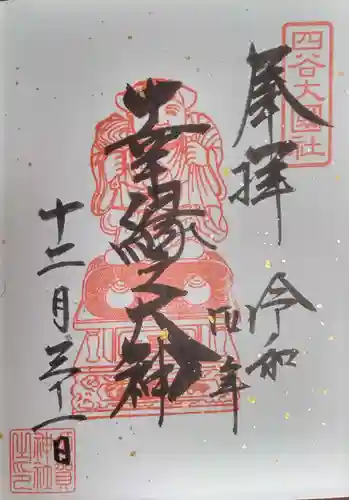 四谷大國社
奉拝
令和
四年
幸縁之大神
十二月三十一日
須賀
神社
之印